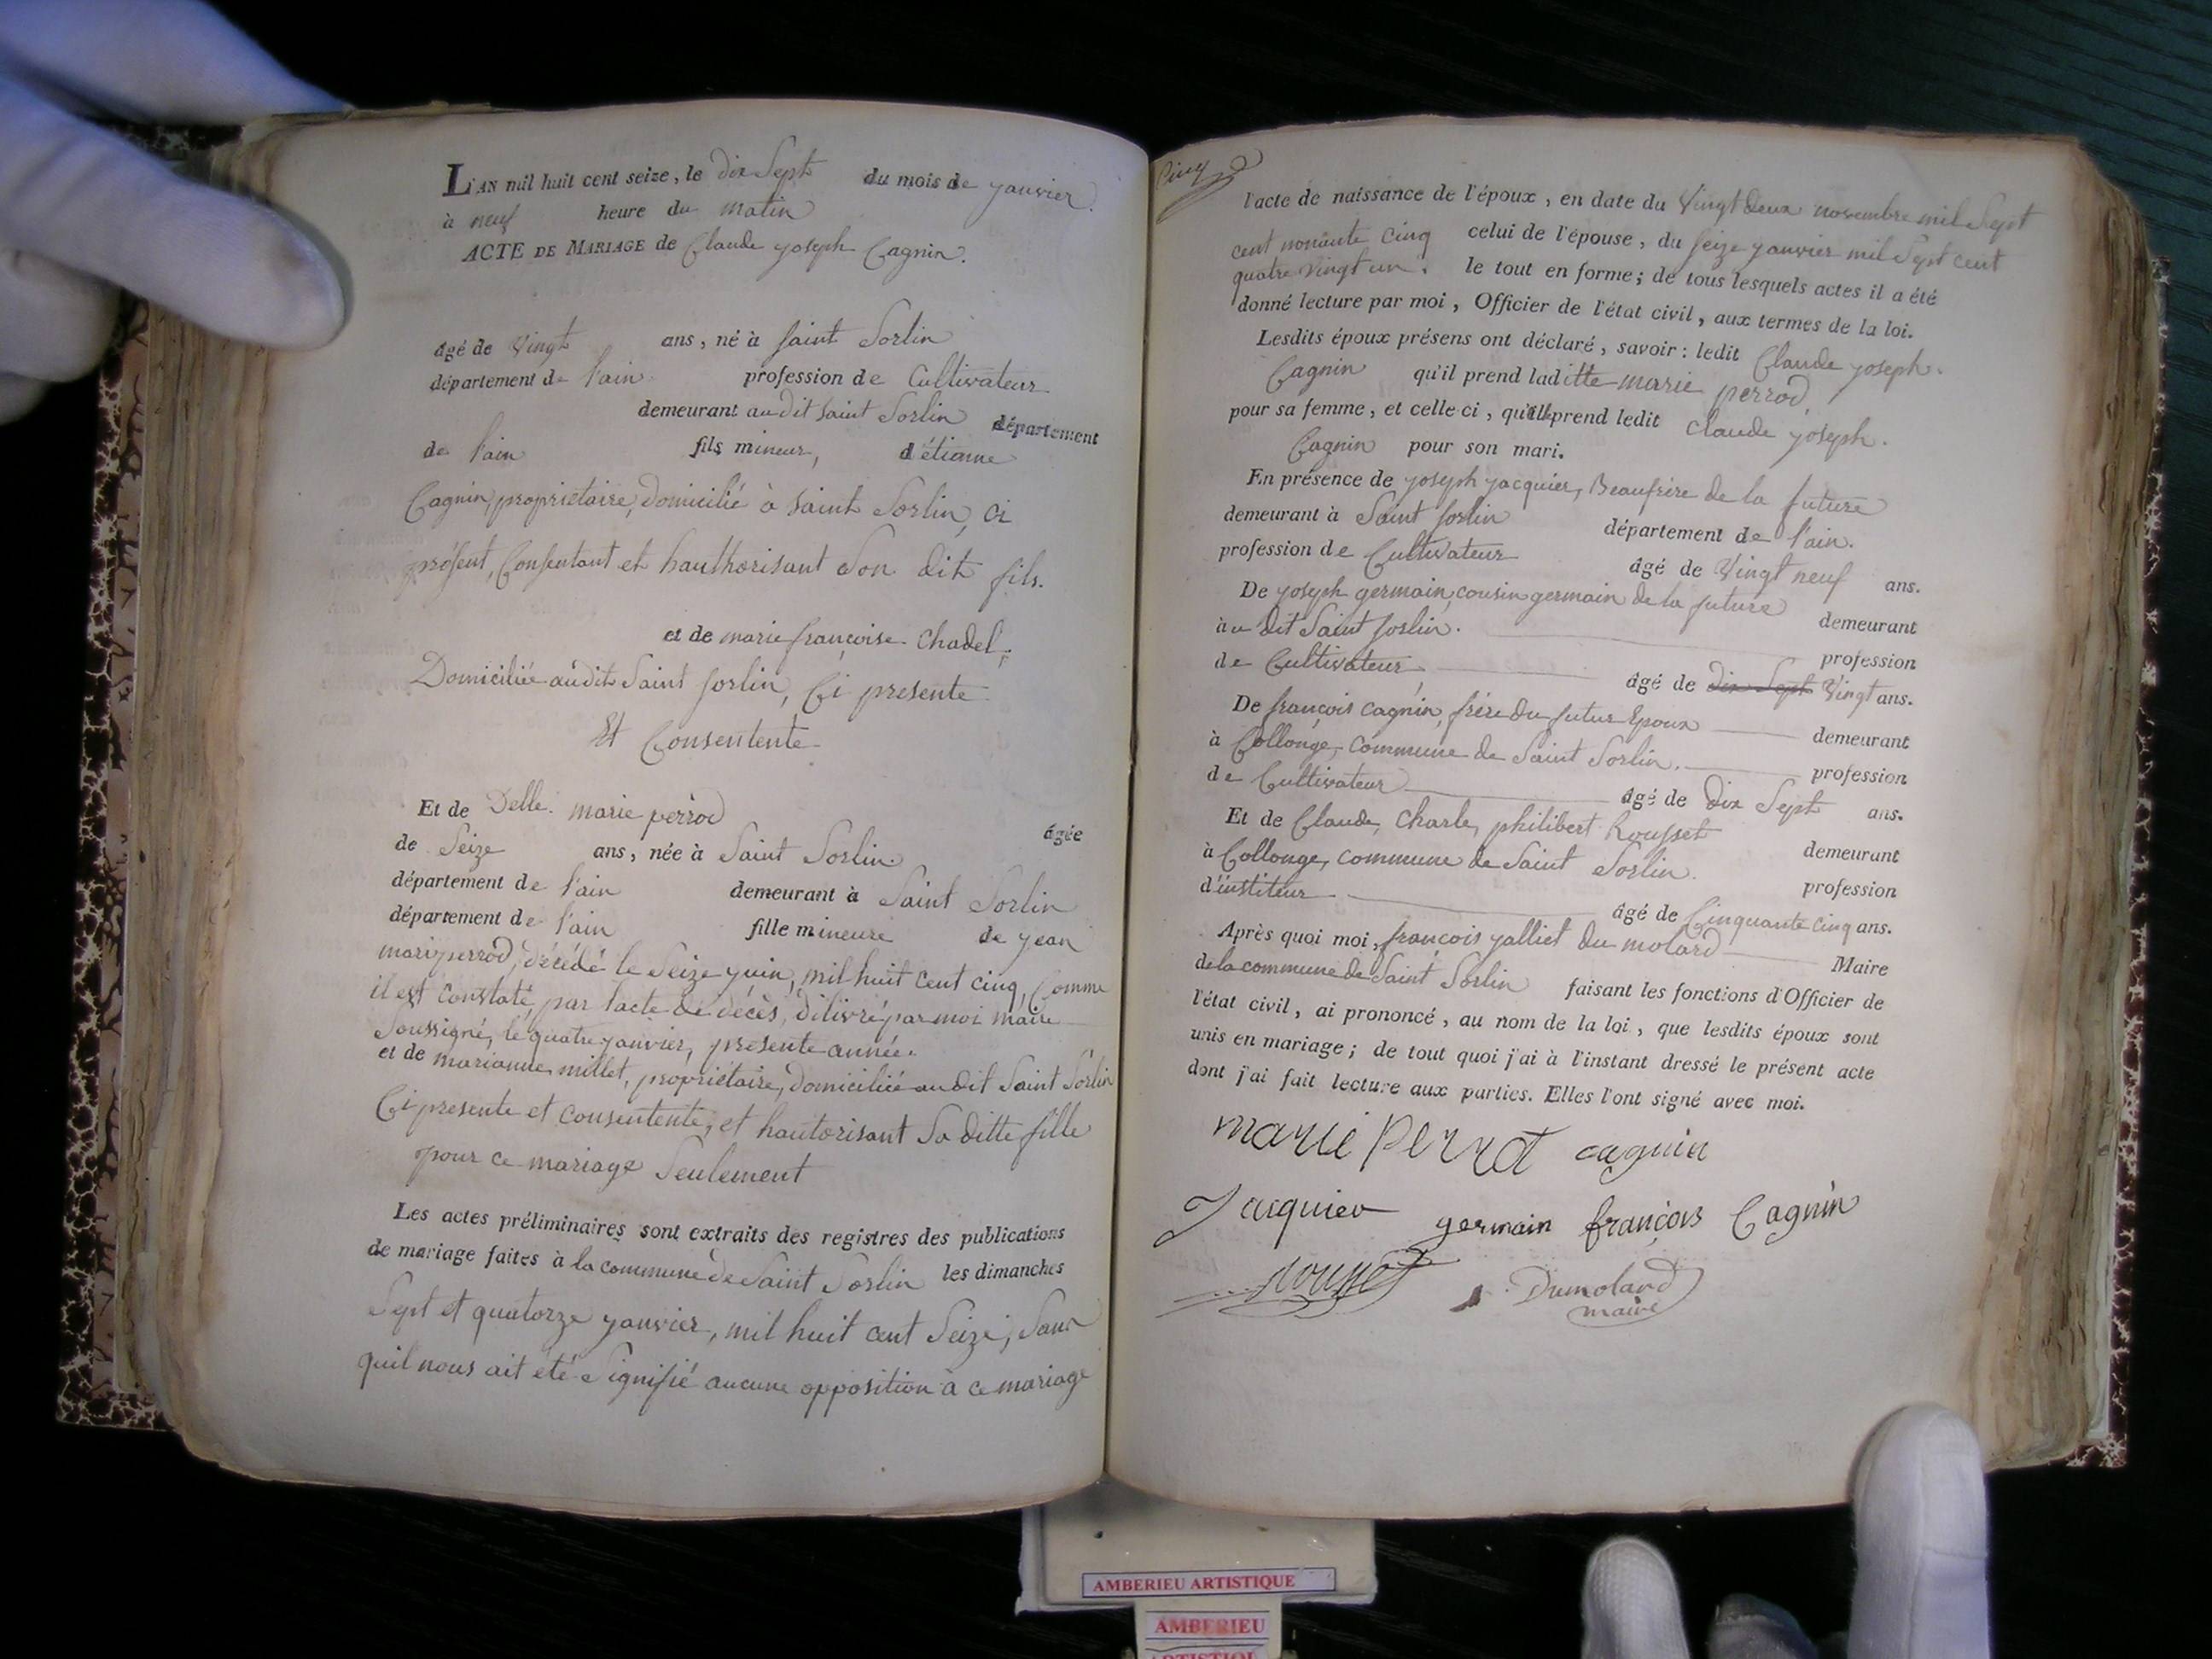 L'AN mil huit cent seize, le dix Sept du mois de janvier.
à neuf heure du matin
ACTE DE MARIAGE de Claude joseph Cagnin.
âgé de Vingt ans, né à Saint Sorlin
département de l'ain profession de Cultivateur
demeurant audit Saint Sorlin département
de l'ain fils mineur, d'étienne
Cagnin, propriétaire, domicilié à Saint Sorlin, ci
présent, Consentant et hauthorisant Son dit fils.
et de marie françoise Chadel,
Domiciliée audit Saint Sorlin, Ci presente
Et Consentente
Et de Delle. marie perrod âgée
de Seize ans, née à Saint Sorlin.
département de l'ain demeurant à Saint Sorlin
département de l'ain fille mineure de jean
mari perrod, décédé le Seize juin, mil huit cent cinq, Comme
il est constaté, par l'acte de décès, délivré par moi maire
Soussigné, le quatre janvier, présente année.
et de marianne millet, propriétaire, domiciliée audit Saint Sorlin
Ci presente et consentente, et hautorisant Sa ditte fille
pour ce mariage Seulement
Les actes préliminaires sont extraits des registres des publications
de mariage faites à la commune de Saint Sorlin les dimanches
Sept et quatorze janvier, mil huit cent Seize, Sans
quil nous ait été Signifié aucune opposition à ce mariage
Cinq
l'acte de naissance de l'époux, en date du Vingt deux novembre mil Sept
cent nonante Cinq celui de l'épouse, du Seize janvier mil Sept cent
quatre Vingt un. le tout en forme; de tous lesquels actes il a été
donné lecture par moi, Officier de l'état civil, aux termes de la loi.
Lesdits époux présens ont déclaré, savoir: ledit Claude joseph.
Cagnin qu'il prend laditte marie perrod,
pour sa femme, et celle-ci, qu'elle prend ledit Claude joseph.
Cagnin pour son mari.
En présence de joseph jacquier, Beaufrère de la future
demeurant à Saint Sorlin département de l'ain.
profession de Cultivateur âgé de Vingt neuf ans.
De joseph germain, cousin germain de la future demeurant
à au dit Saint Sorlin. profession
de Cultivateur, âgé de dix Sept Vingt ans.
De françois cagnin, frère du futur Epoux demeurant
à Collonge, commune de Saint Sorlin. profession
de Cultivateur âgé de Dix Sept ans.
Et de Claude, Charle, philibert Rousset demeurant
à Collonge, commune de Saint Sorlin. profession
d'institeur âgé de Cinquante cinq ans.
Après quoi moi, françois jalliet du molard Maire
de la commune de Saint Sorlin faisant les fonctions d'Officier de
l'état civil, ai prononcé, au nom de la loi, que lesdits époux sont
unis en mariage; de tout quoi j'ai à l'instant dressé le présent acte
dont j'ai fait lecture aux parties. Elles l'ont signé avec moi.
marie perrot cagnin
Jacquier germain françois Cagnin
Rousset Dumolard
maire
AMBERIEU ARTISTIQUE
AMBERIEU
ARTISTIQUE